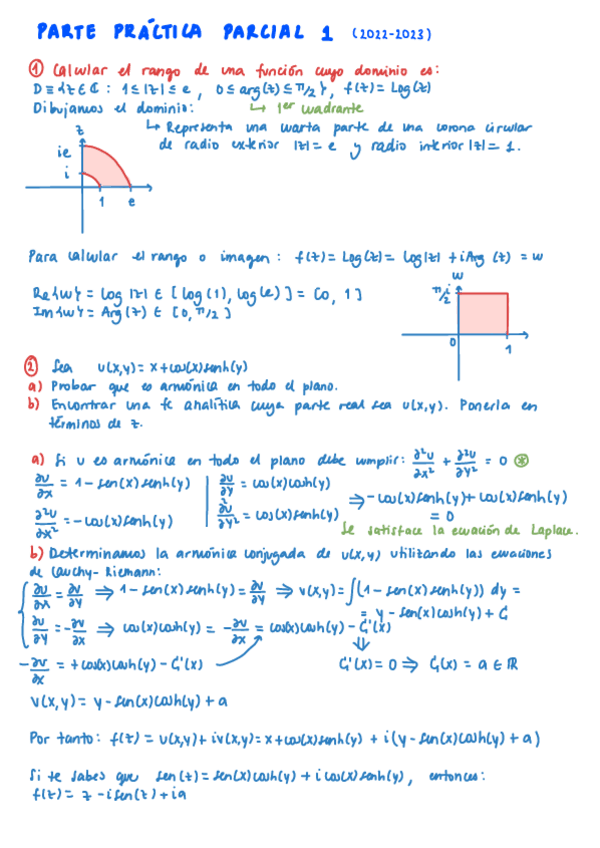 PARTE PRÁCTICA PARCIAL 1 (2022-2023)
① Calcular el rango de una función cuyo dominio es:
D ≡ {z ∈ ℂ : 1 ≤ |z| ≤ e, 0 ≤ arg(z) ≤ π/2}, f(z) = Log(z)
Dibujamos el dominio: ↳ 1er cuadrante
↳ Representa una cuarta parte de una corona circular
de radio exterior |z| = e y radio interior |z| = 1.
z
ie
i
1 e
Para calcular el rango o imagen: f(z) = Log(z) = Log|z| + iArg(z) = w
Re{w} = Log |z| ∈ [log(1), log(e)] = [0, 1]
Im{w} = Arg(z) ∈ [0, π/2]
w
π/2 i
0 1
② Sea u(x,y) = x + cos(x)senh(y)
a) Probar que es armónica en todo el plano.
b) Encontrar una fc analítica cuya parte real sea u(x,y). Ponerla en
términos de z.
a) Si u es armónica en todo el plano debe cumplir: ∂²u/∂x² + ∂²u/∂y² = 0 ⊛
∂u/∂x = 1 - sen(x)senh(y) | ∂u/∂y = cos(x)cosh(y)
∂²u/∂x² = -cos(x)senh(y) | ∂²u/∂y² = cos(x)senh(y) ⇒ -cos(x)senh(y) + cos(x)senh(y)
= 0
Se satisface la ecuación de Laplace.
b) Determinamos la armónica conjugada de u(x,y) utilizando las ecuaciones
de Cauchy-Riemann:
∂u/∂x = ∂v/∂y ⇒ 1 - sen(x)senh(y) = ∂v/∂y ⇒ v(x,y) = ∫(1 - sen(x)senh(y)) dy =
= y - sen(x)cosh(y) + G
∂u/∂y = -∂v/∂x ⇒ cos(x)cosh(y) = -∂v/∂x = cos(x)cosh(y) - G'(x)
⇓
-∂v/∂x = +cos(x)cosh(y) - G'(x) G'(x) = 0 ⇒ G(x) = a ∈ ℝ
v(x,y) = y - sen(x)cosh(y) + a
Por tanto: f(z) = u(x,y) + iv(x,y) = x + cos(x)senh(y) + i(y - sen(x)cosh(y) + a)
Si te sabes que sen(z) = sen(x)cosh(y) + i cos(x)senh(y), entonces:
f(z) = z - isen(z) + ia